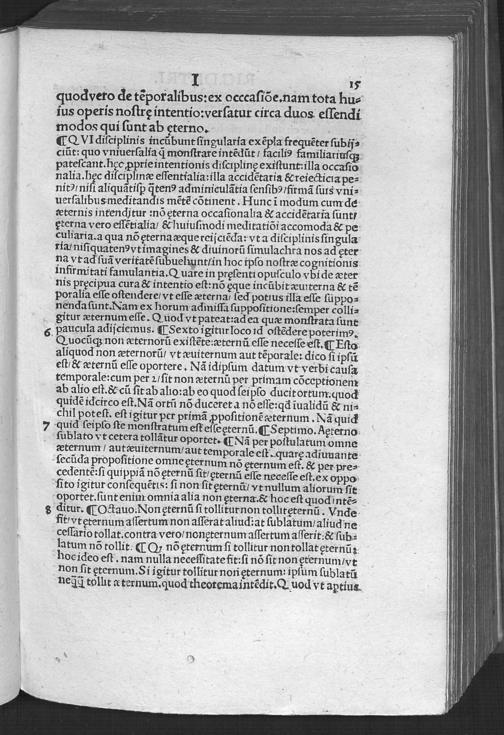 I 15
quodvero de tẽporalibus: ex occcasiõe. nam tota hu⸗
ius operis nostrę intentio: versatur circa duos essendi
modos qui sunt ab ęterno.
¶ Q VI disciplinis incũbunt singularia exẽpla frequẽter subij⸗
ciũt: quo vniuersalia q̃ monstrare intẽdũt / facili⁹ familiariusq̨
patescant. hęc ,pprie intentionis disciplinę existunt: illa occasio
nalia. hęc disciplinæ essentialia: illa accidẽtaria & reiecticia pe⸗
nit⁹/ nisi aliquatisp q̃ten⁹ adminiculãtia sensib⁹/ firmã suis vni⸗
uersalibus meditandis mẽtẽ cõtinent. Hunc ĩ modum cum de
æternis intenditur: nõ ęterna occasionalia & accidẽtaria sunt/
ęterna vero essẽtialia/ & huiusmodi meditatiõi accomoda & pe
culiaria. a qua nõ ęterna æque reijciẽda: vt a disciplinis singula
ria/ nisi quaten⁹ vt imagines & diuinorũ simulachra nos ad ęter
na vt ad suã veritatẽ subuehunt/ in hoc ipso nostræ cognitionis
infirmitati famulantia. Quare in pręsenti opusculo vbi de æter
nis pręcipua cura & intentio est: nõ ęque incũbit æuiterna & tẽ
poralia esse ostendere/ vt esse æterna/ sed potius illa esse suppo⸗
nenda sunt. Nam ex horum admissa suppositione: semper colli⸗
gitur æternum esse. Quod vt pateat: ad ea quæ monstrata sunt
6. paucula adijciemus. ¶ Sexto igitur loco id ostẽdere poterim⁹.
Quocũq̨ non æternorũ existẽte: æternũ esse necesse est. ¶ Esto
aliquod non æternorũ/ vt æuiternum aut tẽporale: dico si ipsũ
est/ & æternũ esse oportere. Nã idipsum datum vt verbi causa
temporale: cum per 2/ sit non æternũ per primam cõceptionem
ab alio est. & cũ sit ab alio: ab eo quod seipso ducit ortum. quod
quidẽ idcirco est. Nã ortũ nõ duceret a nõ esse: qđ iualidũ & ni⸗
chil potest. est igitur per primã ,ppositionẽ æternum. Nã quid
7 quid seipso ste monstratum est esse ęternũ. ¶ Septimo. Aęterno
sublato vt cetera tollãtur oportet. ¶ Nã per postulatum omne
æternum/ aut æuiternum/ aut temporale est. quare adiuuante
secũda propositione omne ęternum nõ ęternum est. & per pre⸗
cedentẽ: si quippiã nõ ęternũ sit/ ęternũ esse necesse est. ex oppo
sito igitur consequẽtis: si non sit ęternũ/ vt nullum aliorum sit
oportet. sunt enim omnia alia non ęterna. & hoc est quod ĩtẽ⸗
8 ditur. ¶ Octauo. Non ęternũ si tollitur non tollit ęternũ. Vnde
fit/ vt ęternum assertum non asserat aliud: at sublatum/ aliud ne
cessario tollat. contra vero/ nonęternum assertum asserit: & sub⸗
latum nõ tollit. ¶ Q₂ nõ ęternum si tollitur non tollat ęternũ:
hoc ideo est. nam nulla necessitate fit: si nõ sit non ęternum/ vt
non sit ęternum. Si igitur tollitur non ęternum: ipsum sublatũ
neq̃q̃ tollit æternum. quod theorema intẽdit. Quod vt aptius